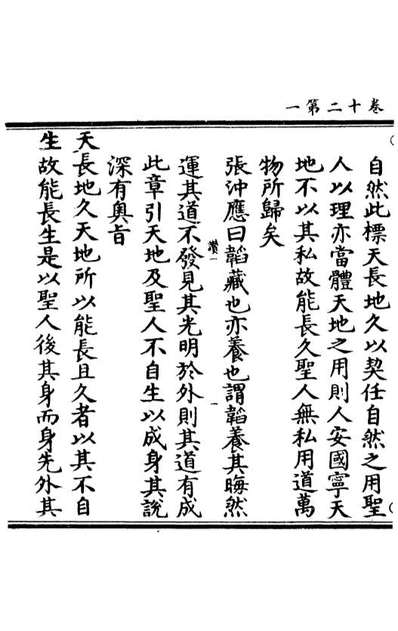 卷十二第一
自然此標天長地久以契任自然之用聖
人以理亦當體天地之用則人安國寧天
地不以其私故能長久聖人無私用道萬
物所歸矣
張沖應曰韜藏也亦養也謂韜養其晦然
運其道不發見其光明於外則其道有成
此章引天地及聖人不自生以成身其說
深有奧旨
天長地久天地所以能長且久者以其不自
生故能長生是以聖人後其身而身先外其